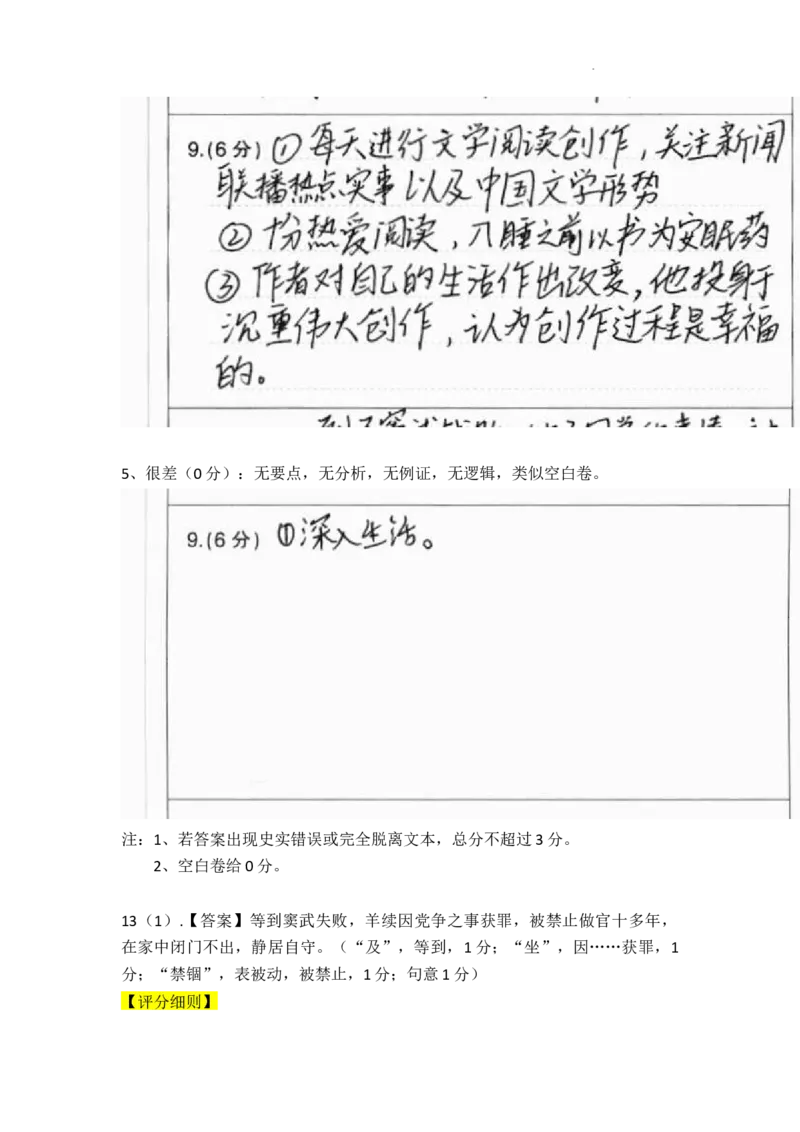 9.(6分) ①每天进行文学阅读创作，关注新闻
联播热点实事以及中国文学形势
②十分热爱阅读，入睡之前以书为安眠药
③作者对自己的生活作出改变，他投身于
沉重伟大创作，认为创作过程是幸福
的。
5、很差（0分）：无要点，无分析，无例证，无逻辑，类似空白卷。
9.(6分) ①深入生活。
注：1、若答案出现史实错误或完全脱离文本，总分不超过3分。
2、空白卷给0分。
13（1）.【答案】等到窦武失败，羊续因党争之事获罪，被禁止做官十多年，
在家中闭门不出，静居自守。（“及”，等到，1分；“坐”，因……获罪，1
分；“禁锢”，表被动，被禁止，1分；句意1分）
【评分细则】